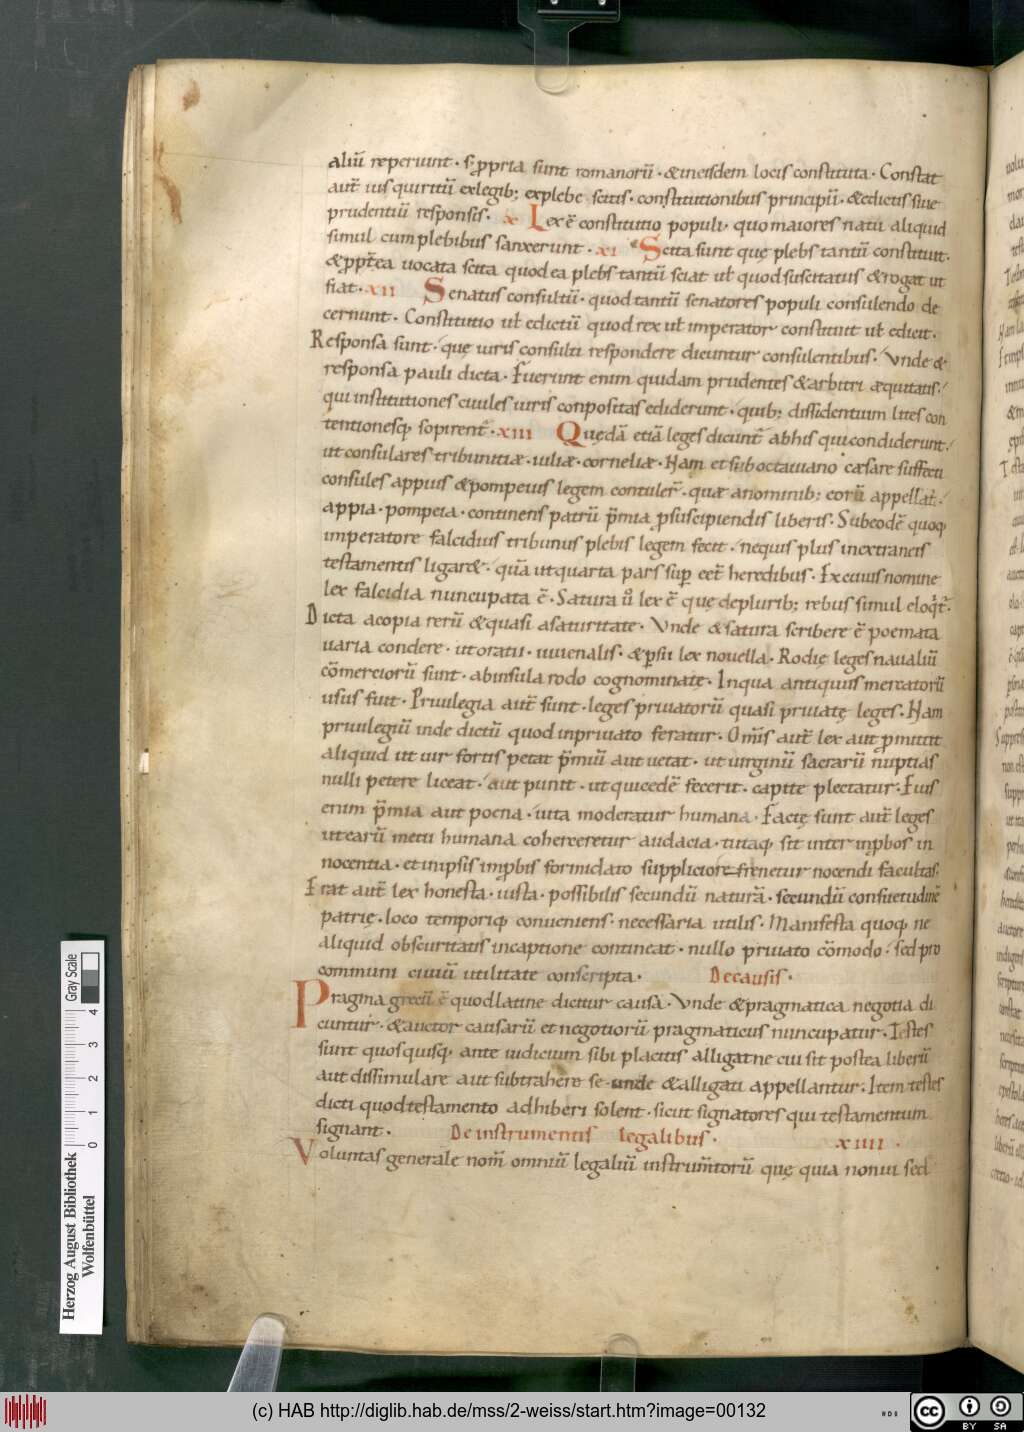 aliū reperiunt · s; ꝓpria sunt romanorū · & in eisdem locis constituta · Constat
aut̄ ius quiritū ex legib; ex plebe scitis · constitutionibus principū · & edictis siue
prudentiū responsis · x Lex ē constitutio populi · quo maiores natu aliquid
simul cum plebibus sanxerunt · xi Scita sunt quę plebs tantū constituit ·
& ꝓpt̄ea uocata scita quod ea plebs tantū sciat ul̄ quod suscitatus & rogat ut
fiat · xii Senatus consultū · quod tantū senatores populi consulendo de
cernunt · Constitutio ul̄ edictū quod rex ul̄ imperator constituit ul̄ edicit ·
Responsa sunt · quę iuris consulti respondere dicuntur consulentibus · Vnde &
responsa pauli dicta · Fuerunt enim quidam prudentes & arbitri æquitatis ·
qui institutiones ciuiles iuris conpositas ediderunt · quib; dissidentium lites con
tentionesq; sopirent · xiii Quędā etiā leges dicunt̄ ab his qui condiderunt ·
ut consulares tribunitiæ · iuliæ · corneliæ · Nam et sub octauiano cæsare suffecti
consules appius & pompeius legem contuler̄ · quæ a nominib; eorū appellat̄ ·
appia · pompeia · continens patrū p̄mia ꝑ suscipiendis liberis · Sub eodē quoq;
imperatore falcidius tribunus plebis legem fecit · ne quis plus in extraneis
testamentis ligar& · quā ut quarta pars suꝑ eet̄ heredibus · Ex cuius nomine
lex falcidia nuncupata ē · Satura ū lex ē quę de plurib; rebus simul eloq̄t̄ ·
Dicta a copia rerū & quasi a saturitate · Vnde & satura scribere ē poemata
uaria condere · ut oratii · iuuenalis · & ꝑsii lex nouella · Rodię leges naualiū
cōmerciorū sunt · ab insula rodo cognominatę · In qua antiquus mercatorū
usus fuit · Priuilegia aut̄ sunt · leges priuatorū quasi priuatę leges · Nam
priuilegiū inde dictū quod in priuato feratur · Om̄is aut̄ lex aut ꝑmittit
aliquid ut uir fortis petat p̄miū aut uetat · ut uirginū sacrarū nuptias
nulli petere liceat · aut punit · ut qui cedē fecerit · capite plectatur · Eius
enim p̄mia aut poena · uita moderatur humana · Factę sunt aut̄ leges
ut earū metu humana coherceretur audacia · tutaq; sit inter inꝓbos in
nocentia · et in ipsis imꝓbis formidato suppliciore frenetur nocendi facultas ·
Erat aut̄ lex honesta · iusta · possibilis secundū naturā · secundū consuetudinē
patrię · loco temporiq; conueniens · necessaria utilis · Manifesta quoq; ne
aliquid obscuritatis in captione contineat · nullo priuato cōmodo · sed pro
communi ciuiū utilitate conscripta · De causis ·
Pragma grecū ē quod latine dicitur causa · Vnde & pragmatica negotia di
cuntur · & auctor causarū et negotiorū pragmaticus nuncupatur · Testes
sunt quos quisq; ante iudicium sibi placitis alligat ne cui sit postea liberū
aut dissimulare aut subtrahere se · unde & alligati appellantur · Item testes
dicti quod testamento adhiberi solent · sicut signatores qui testamentum
signant · De instrumentis legalibus · xiiii ·
Voluntas generale nom̄ omniū legaliū instrum̄torū quę quia non ui sed
Herzog August Bibliothek
Wolfenbüttel
0 1 2 3 4
Gray Scale
(c) HAB http://diglib.hab.de/mss/2-weiss/start.htm?image=00132
cc BY SA